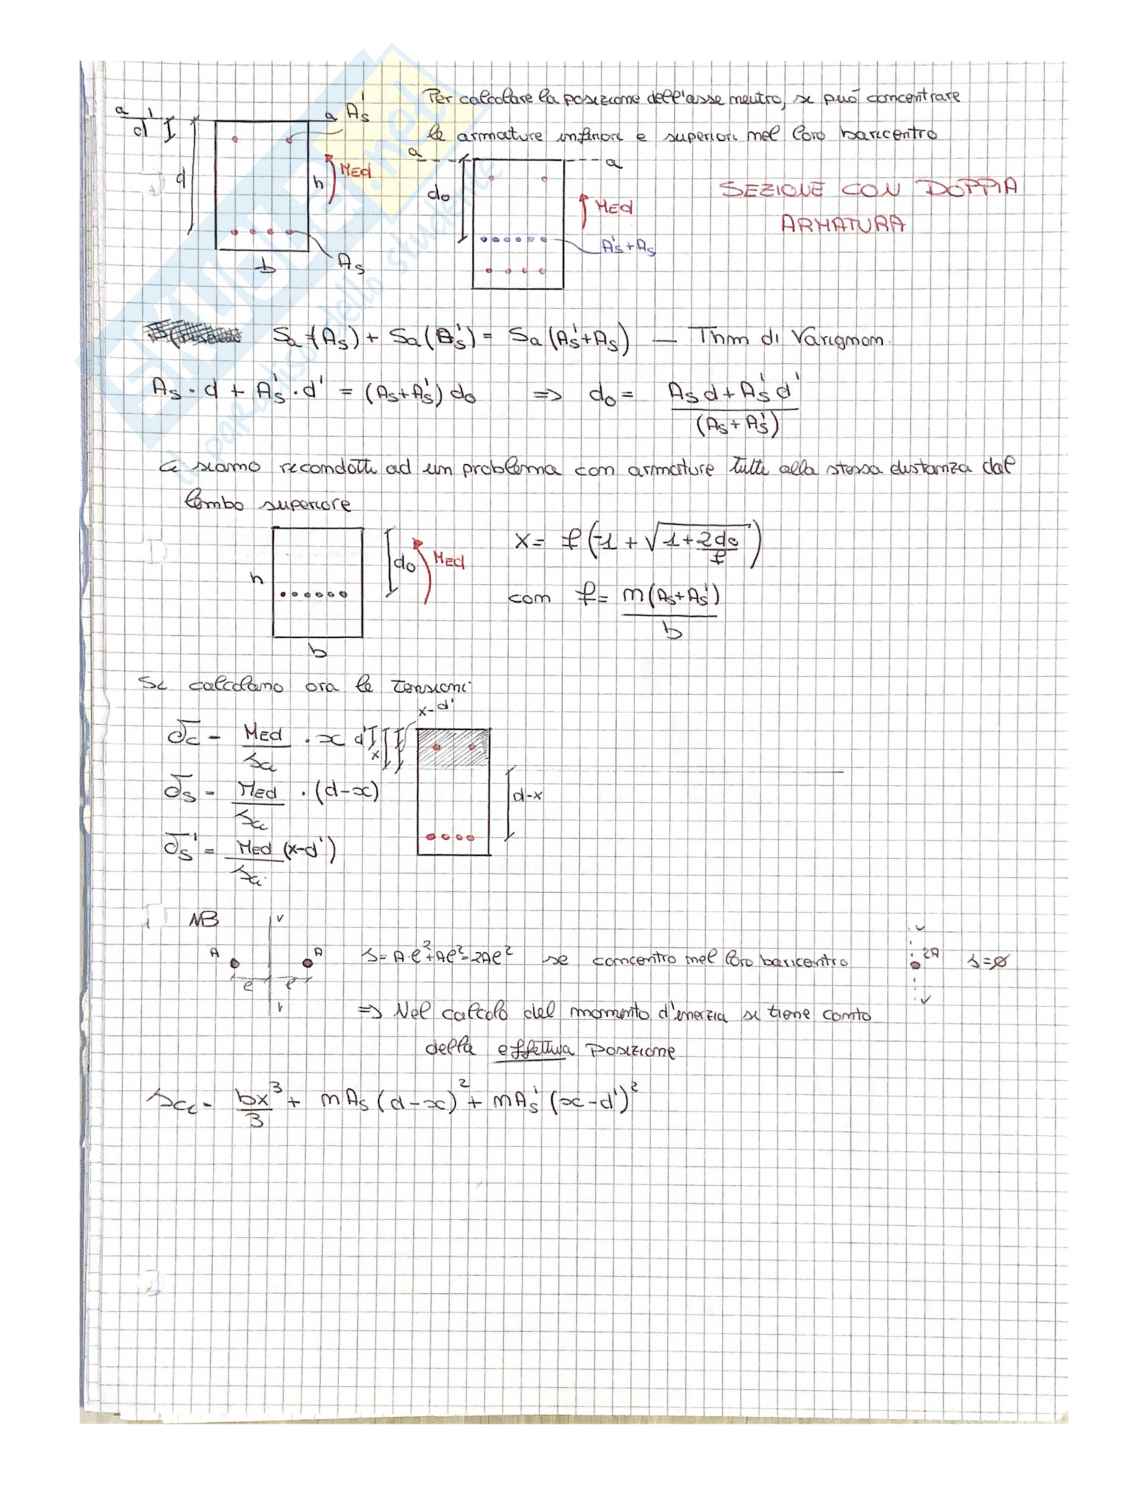 Per calcolare la posizione dell'asse neutro, si può concentrare
le armature inferiori e superiori nel loro baricentro
SEZIONE CON DOPPIA
ARMATURA
a d' d a A's h MEd b As
a a do MEd A's+As
Sa(As) + Sa(A's) = Sa(A's+As) — Thm di Varignon
As · d + A's · d' = (As+A's) do => do = As d + A's d' / (As + A's)
Ci siamo ricondotti ad un problema con armature tutte alla stessa distanza dal
lembo superiore
h b do MEd
x = f (-1 + √1 + 2do/f)
con f = n(As+A's) / b
Si calcolano ora le tensioni:
σc = MEd/Jci · x
σs = MEd/Jci · (d-x)
σs' = MEd/Jci (x-d')
x-d' d' x d-x
NB
A A e e v v
J = A·e²+Ae²=2Ae² se concentro nel loro baricentro
v 2A v J=ø
=> Nel calcolo del momento d'inerzia si tiene conto
della effettiva posizione
Jci = bx³/3 + nAs(d-x)² + nA's(x-d')²